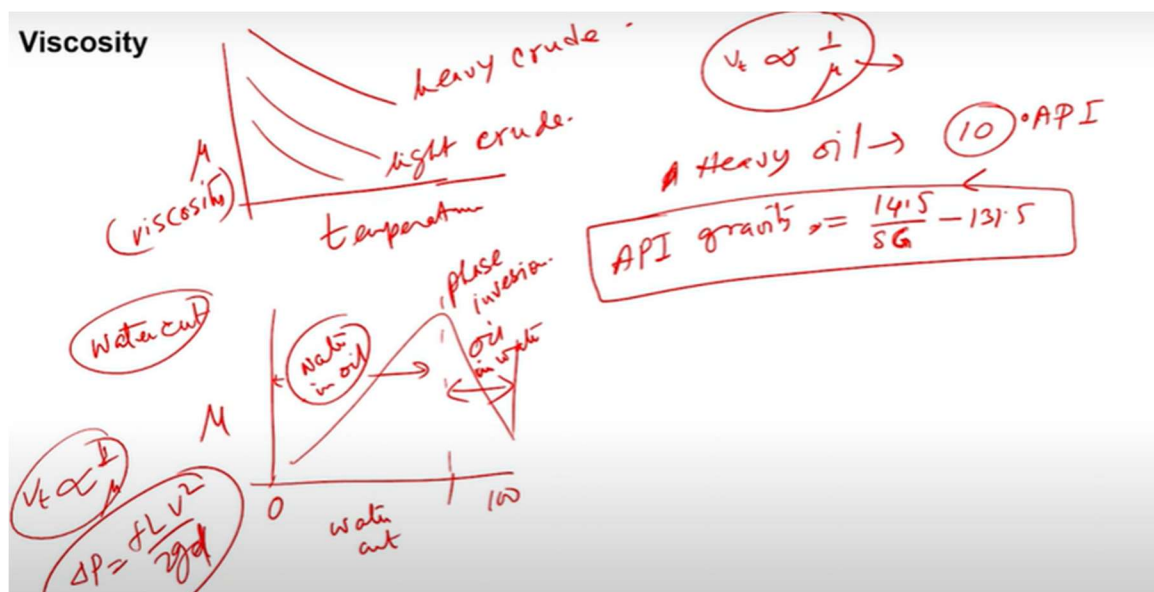 Viscosity
heavy crude
light crude.
μ
(viscosity)
temperature
Vt ∝ 1/μ →
Heavy oil → 10 °API
API gravity = 141.5/SG − 131.5
water cut
phase
invesion.
water
in oil
oil
in water
μ
0
100
water
cut
Vt ∝ 1/μ
ΔP = fLV²/2gd